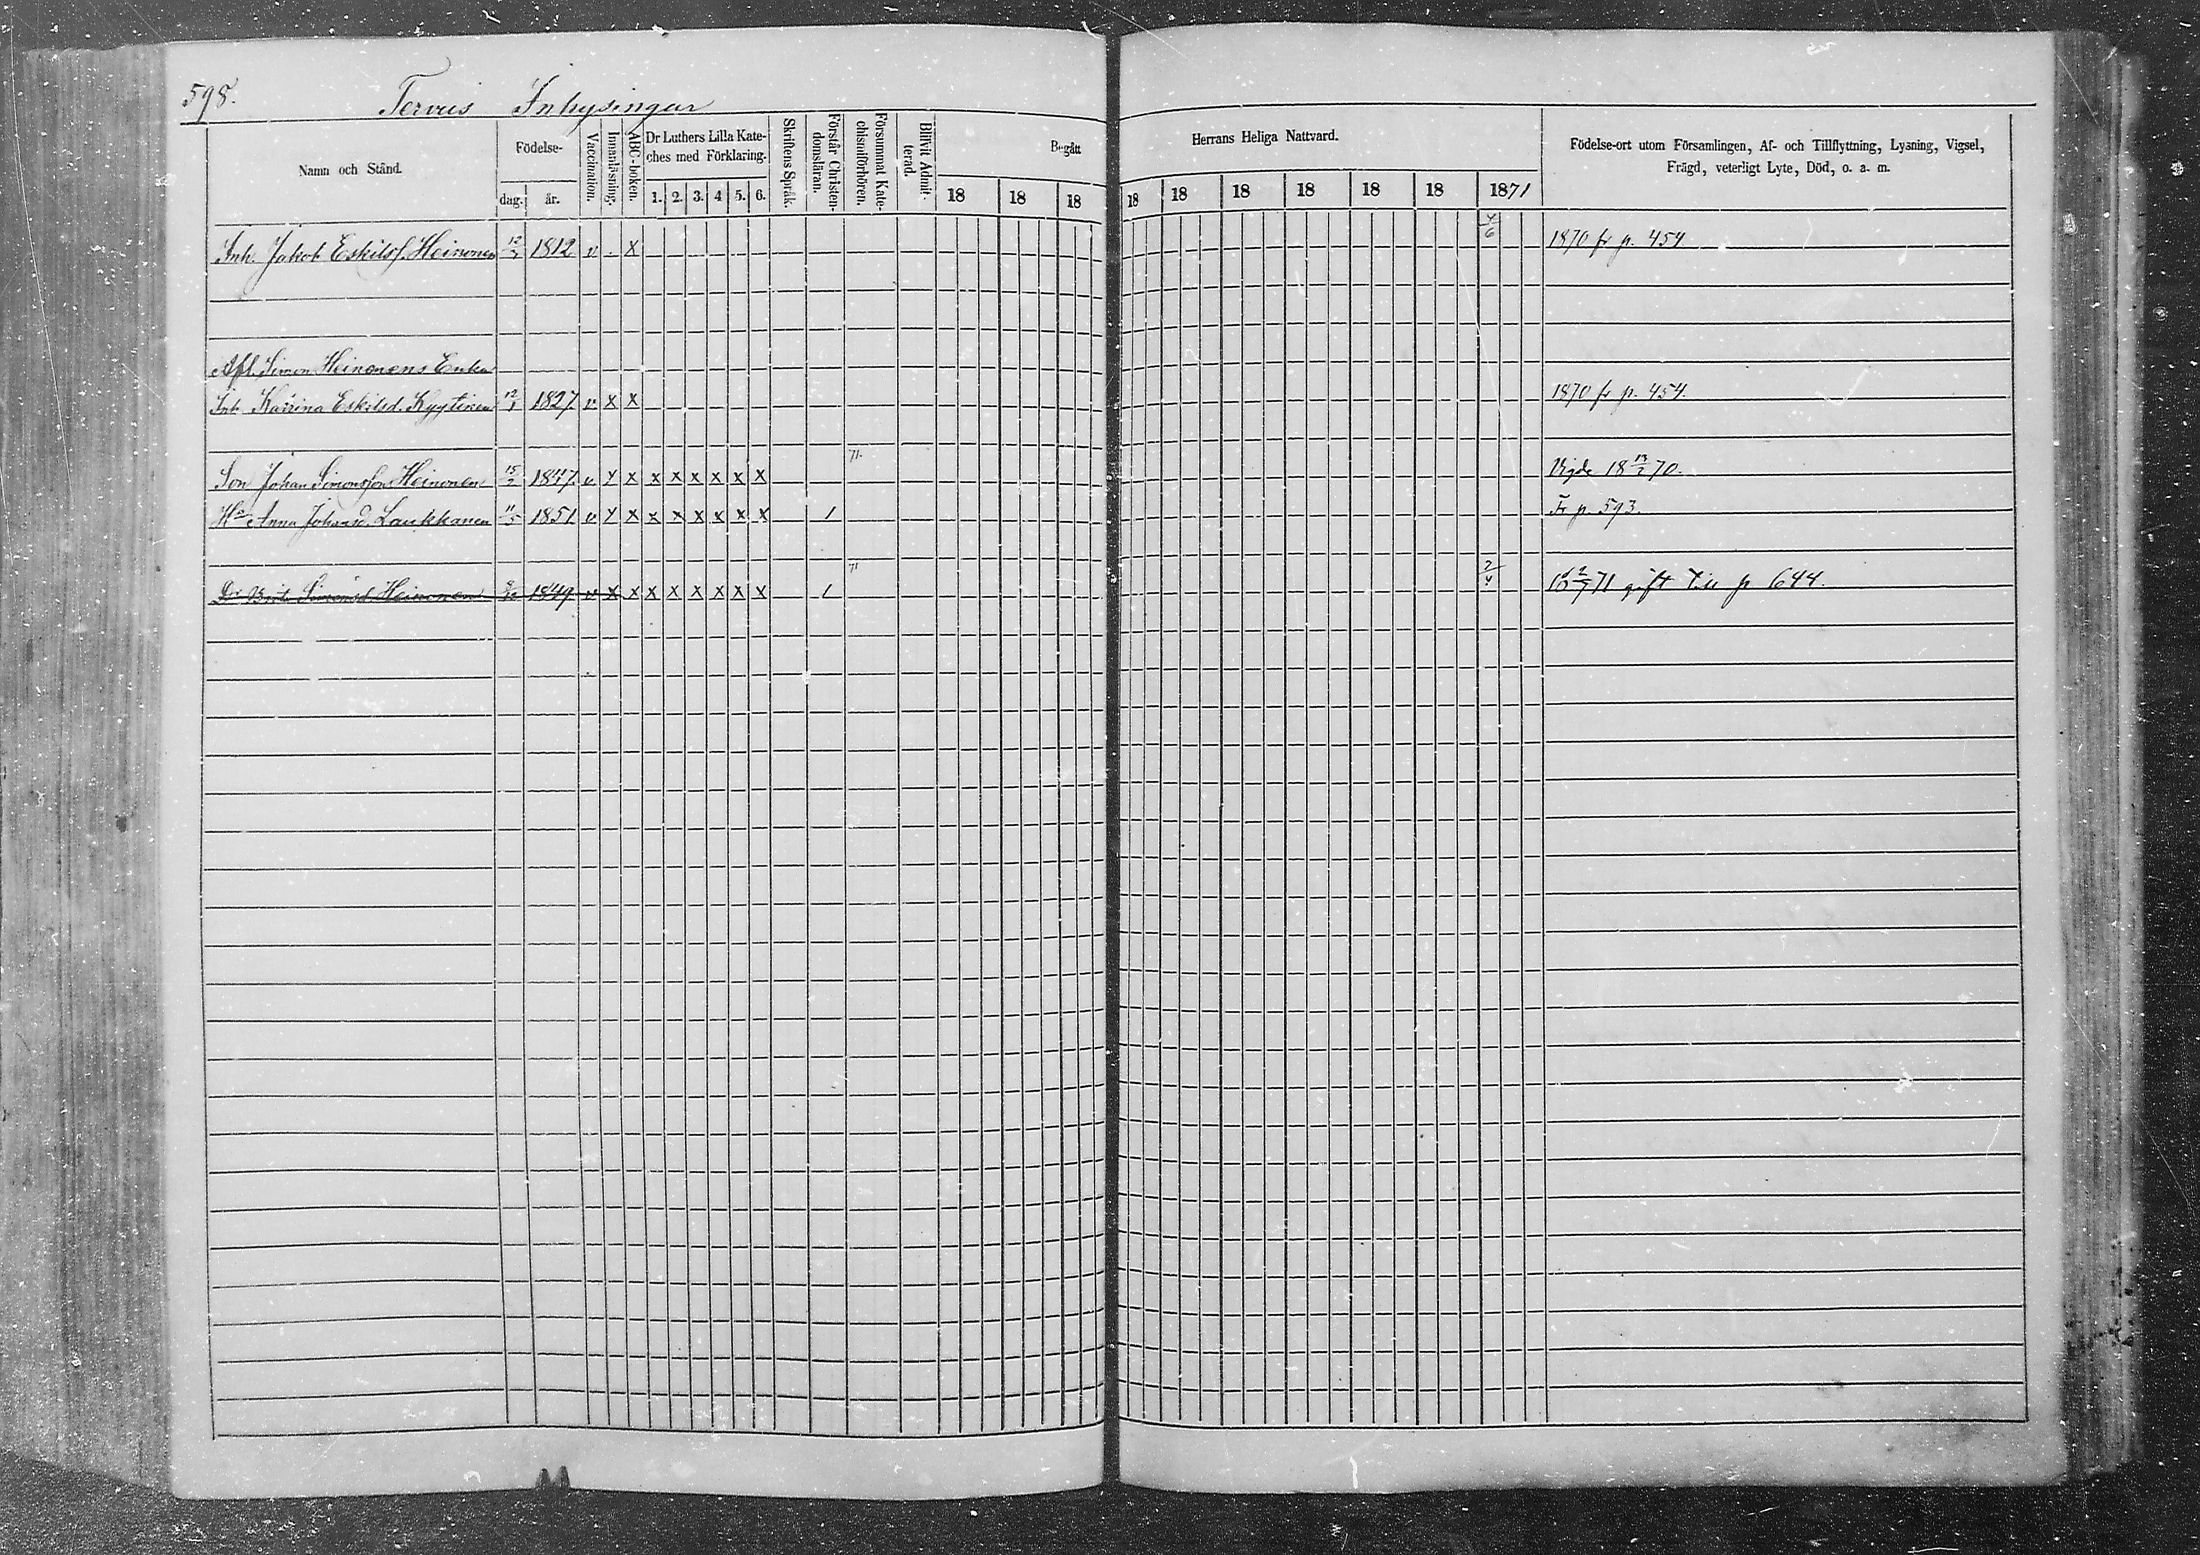 598.
Tervus Inhysingar
Namn och Stånd.
Födelse-
dag.
år.
Vaccination.
Innanläsning.
ABC-boken.
Dr Luthers Lilla Kate-
ches med Förklaring.
1. 2. 3. 4 5. 6.
Skriftens Språk.
Förstår Christen-
domsläran.
Försummat Kate-
chismiförhören.
Blifvit Admit-
terad.
Begått
18 18 18
Herrans Heliga Nattvard.
18 18 18 18 18 18 1871
Födelse-ort utom Församlingen, Af- och Tillflyttning, Lysning, Vigsel,
Frägd, veterligt Lyte, Död, o. a. m.
Inh. Jakob Eskilsf. Heinonen 1812 v . x 4/6 1870 fr p. 454
Afl. Simon Heinonens Enka
Inh. Kaisina Eskilsd. Kyytinen 12/1 1827. v x x 1870 fr p. 454.
Son Johan Simonsson Heinonen 15/2 1847. v x x x x x x x x 71. Vigde 18 13/2 70.
Hu Anna Johansd. Laukkanen 11/5 1851 v x x x x x x x x 1 Fr p. 593.
Dr Brita Simonsd Heinonen 1849 v x x x x x x x x 1 71 2/4 18 2/7 71 gift till p 644.